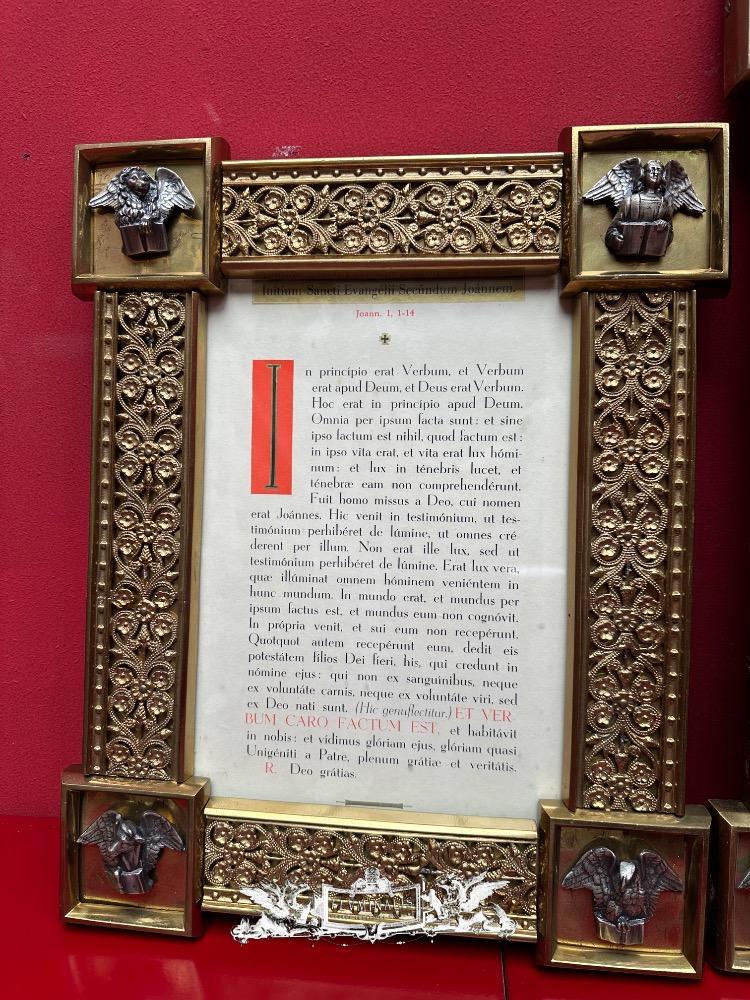 Initium Sancti Evangélii Secúndum Joánnem.
Joann. 1, 1-14
In princípio erat Verbum, et Verbum
erat apud Deum, et Deus erat Verbum.
Hoc erat in princípio apud Deum.
Omnia per ipsum facta sunt: et sine
ipso factum est nihil, quod factum est:
in ipso vita erat, et vita erat lux hómi-
num: et lux in ténebris lucet, et
ténebræ eam non comprehendérunt.
Fuit homo missus a Deo, cui nomen
erat Joánnes. Hic venit in testimónium, ut tes-
timónium perhibéret de lúmine, ut omnes cré-
derent per illum. Non erat ille lux, sed ut
testimónium perhibéret de lúmine. Erat lux vera,
quæ illúminat omnem hóminem veniéntem in
hunc mundum. In mundo erat, et mundus per
ipsum factus est, et mundus eum non cognóvit.
In própria venit, et sui eum non recepérunt.
Quotquot autem recepérunt eum, dedit eis
potestátem fílios Dei fieri, his, qui credunt in
nómine ejus: qui non ex sanguínibus, neque
ex voluntáte carnis, neque ex voluntáte viri, sed
ex Deo nati sunt. (Hic genuflectitur.) ET VER-
BUM CARO FACTUM EST, et habitávit
in nobis: et vídimus glóriam ejus, glóriam quasi
Unigéniti a Patre, plenum grátiæ et veritátis.
R. Deo grátias.